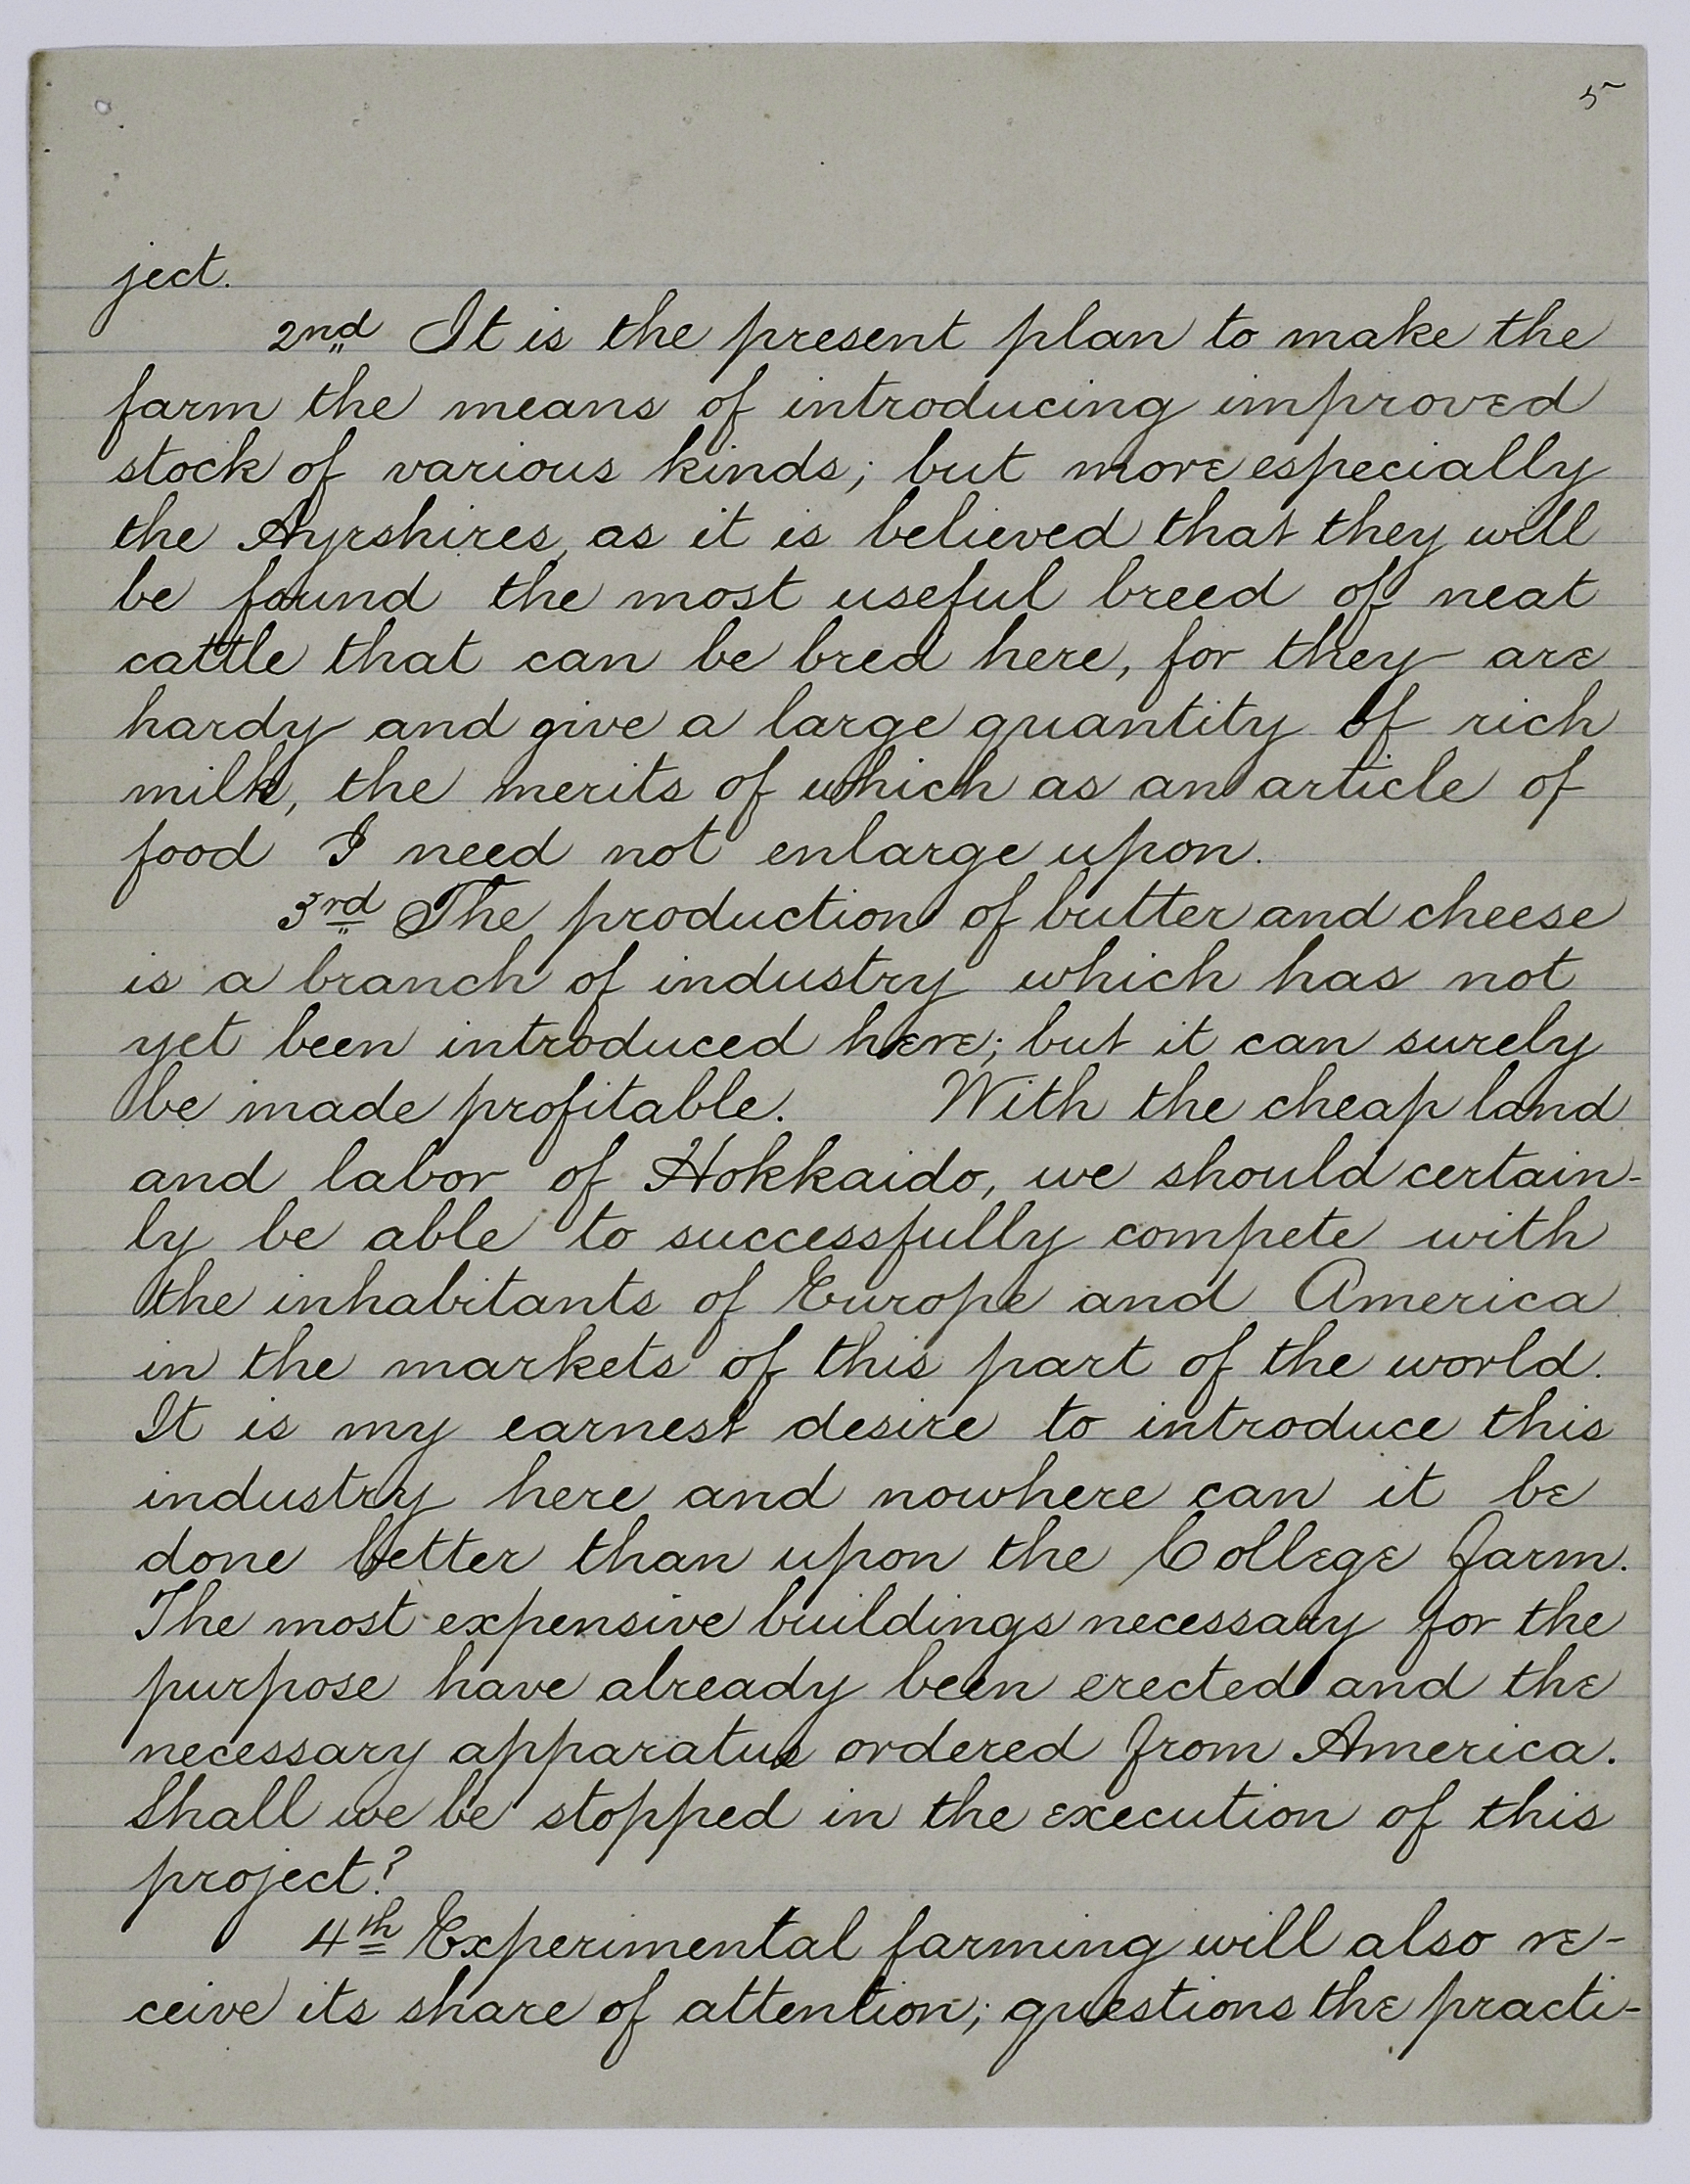 5
ject.
2nd It is the present plan to make the
farm the means of introducing improved
stock of various kinds; but more especially
the Ayrshires, as it is believed that they will
be found the most useful breed of neat
cattle that can be bred here, for they are
hardy and give a large quantity of rich
milk, the merits of which as an article of
food I need not enlarge upon.
3rd The production of butter and cheese
is a branch of industry which has not
yet been introduced here; but it can surely
be made profitable. With the cheap land
and labor of Hokkaido, we should certain-
ly be able to successfully compete with
the inhabitants of Europe and America
in the markets of this part of the world.
It is my earnest desire to introduce this
industry here and nowhere can it be
done better than upon the College farm.
The most expensive buildings necessary for the
purpose have already been erected and the
necessary apparatus ordered from America.
Shall we be stopped in the execution of this
project?
4th Experimental farming will also re-
ceive its share of attention; questions the practi-